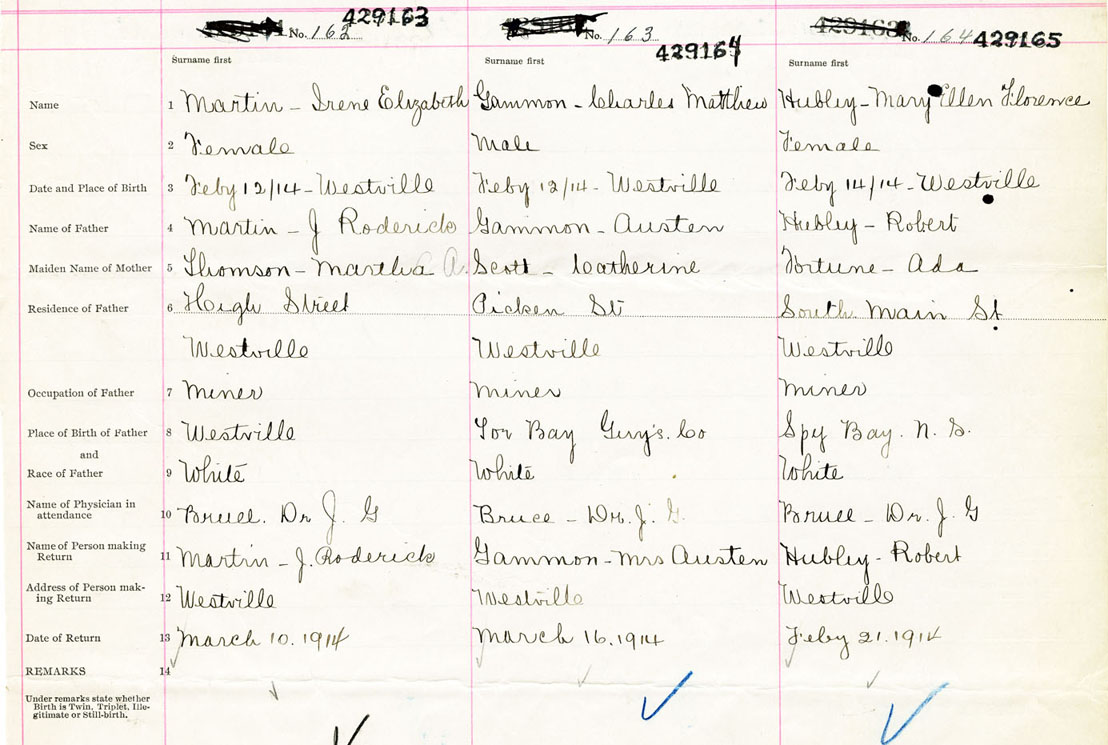 No. 162 429163 No. 163 429164 No. 164 429165
Surname first Surname first Surname first
Name 1 Martin - Irene Elizabeth Gammon - Charles Matthew Hubley - Mary Ellen Florence
Sex 2 Female Male Female
Date and Place of Birth 3 Feby 12/14 - Westville Feby 12/14 - Westville Feby 14/14 - Westville
Name of Father 4 Martin - J Roderick Gammon - Austen Hubley - Robert
Maiden Name of Mother 5 Thomson - Martha A. Scott - Catherine Fortune - Ada
Residence of Father 6 High Street Picken St South Main St
Westville Westville Westville
Occupation of Father 7 Miner Miner Miner
Place of Birth of Father 8 Westville Tor Bay Guy's. Co Spy Bay. N. S.
and
Race of Father 9 White White White
Name of Physician in
attendance 10 Bruce. Dr J. G Bruce - Dr. J. G. Bruce - Dr. J. G
Name of Person making
Return 11 Martin - J. Roderick Gammon - Mrs Austen Hubley - Robert
Address of Person mak-
ing Return 12 Westville Westville Westville
Date of Return 13 March 10. 1914 March 16. 1914 Feby 21. 1914
REMARKS 14
Under remarks state whether
Birth is Twin, Triplet, Ille-
gitimate or Still-birth.